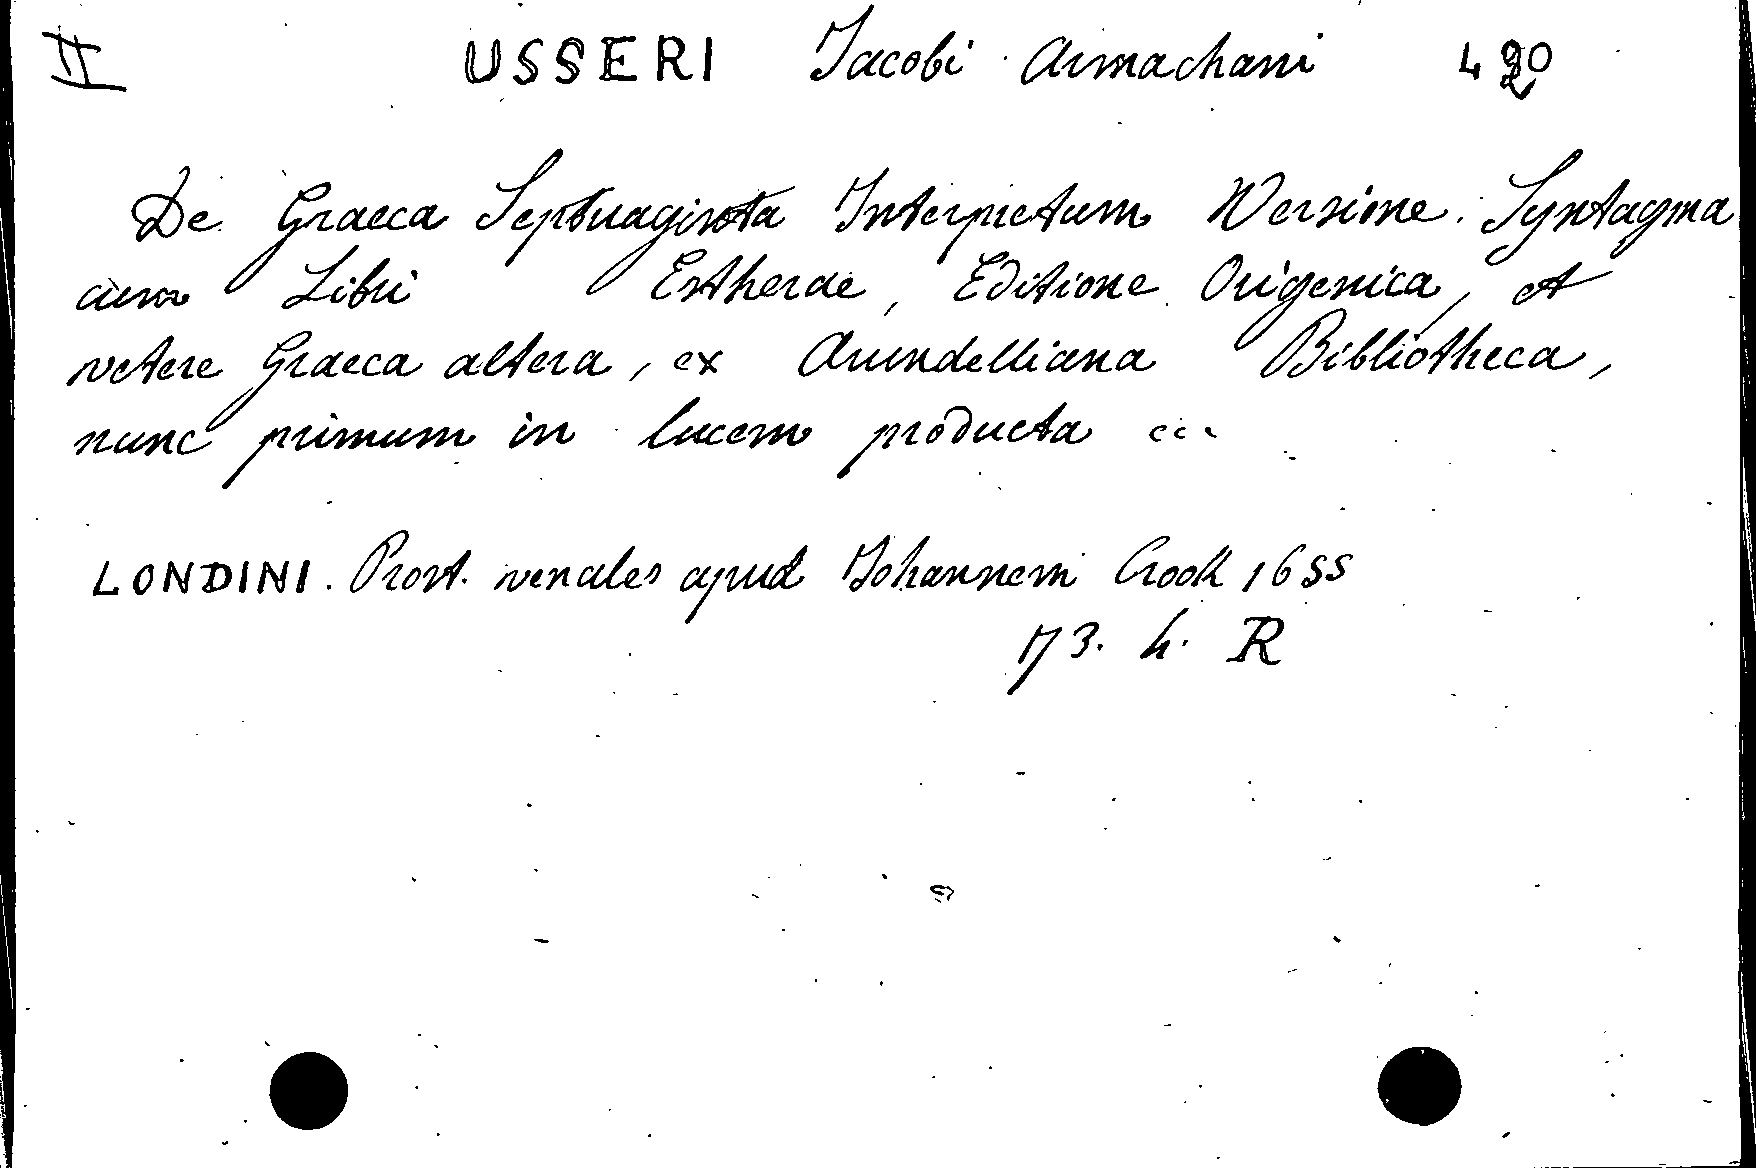 II USSERI Jacobi Armachani 420
De Graeca Septuaginta Interpretum Versione. Syntagma
cum Libri Estherae, Editione Origenica, et
vetere Graeca altera, ex Arundelliana Bibliotheca,
nunc primum in lucem producta ...
LONDINI. Prost. venales apud Johannem Crook 1655
173. h. R